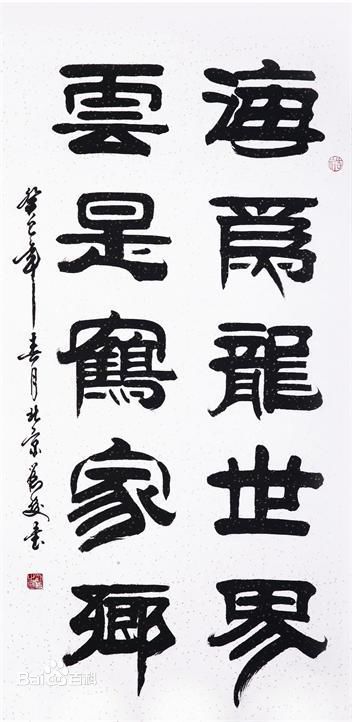 海爲龍世界
雲是鶴家鄉
癸巳年春月北京書
Baidu百科